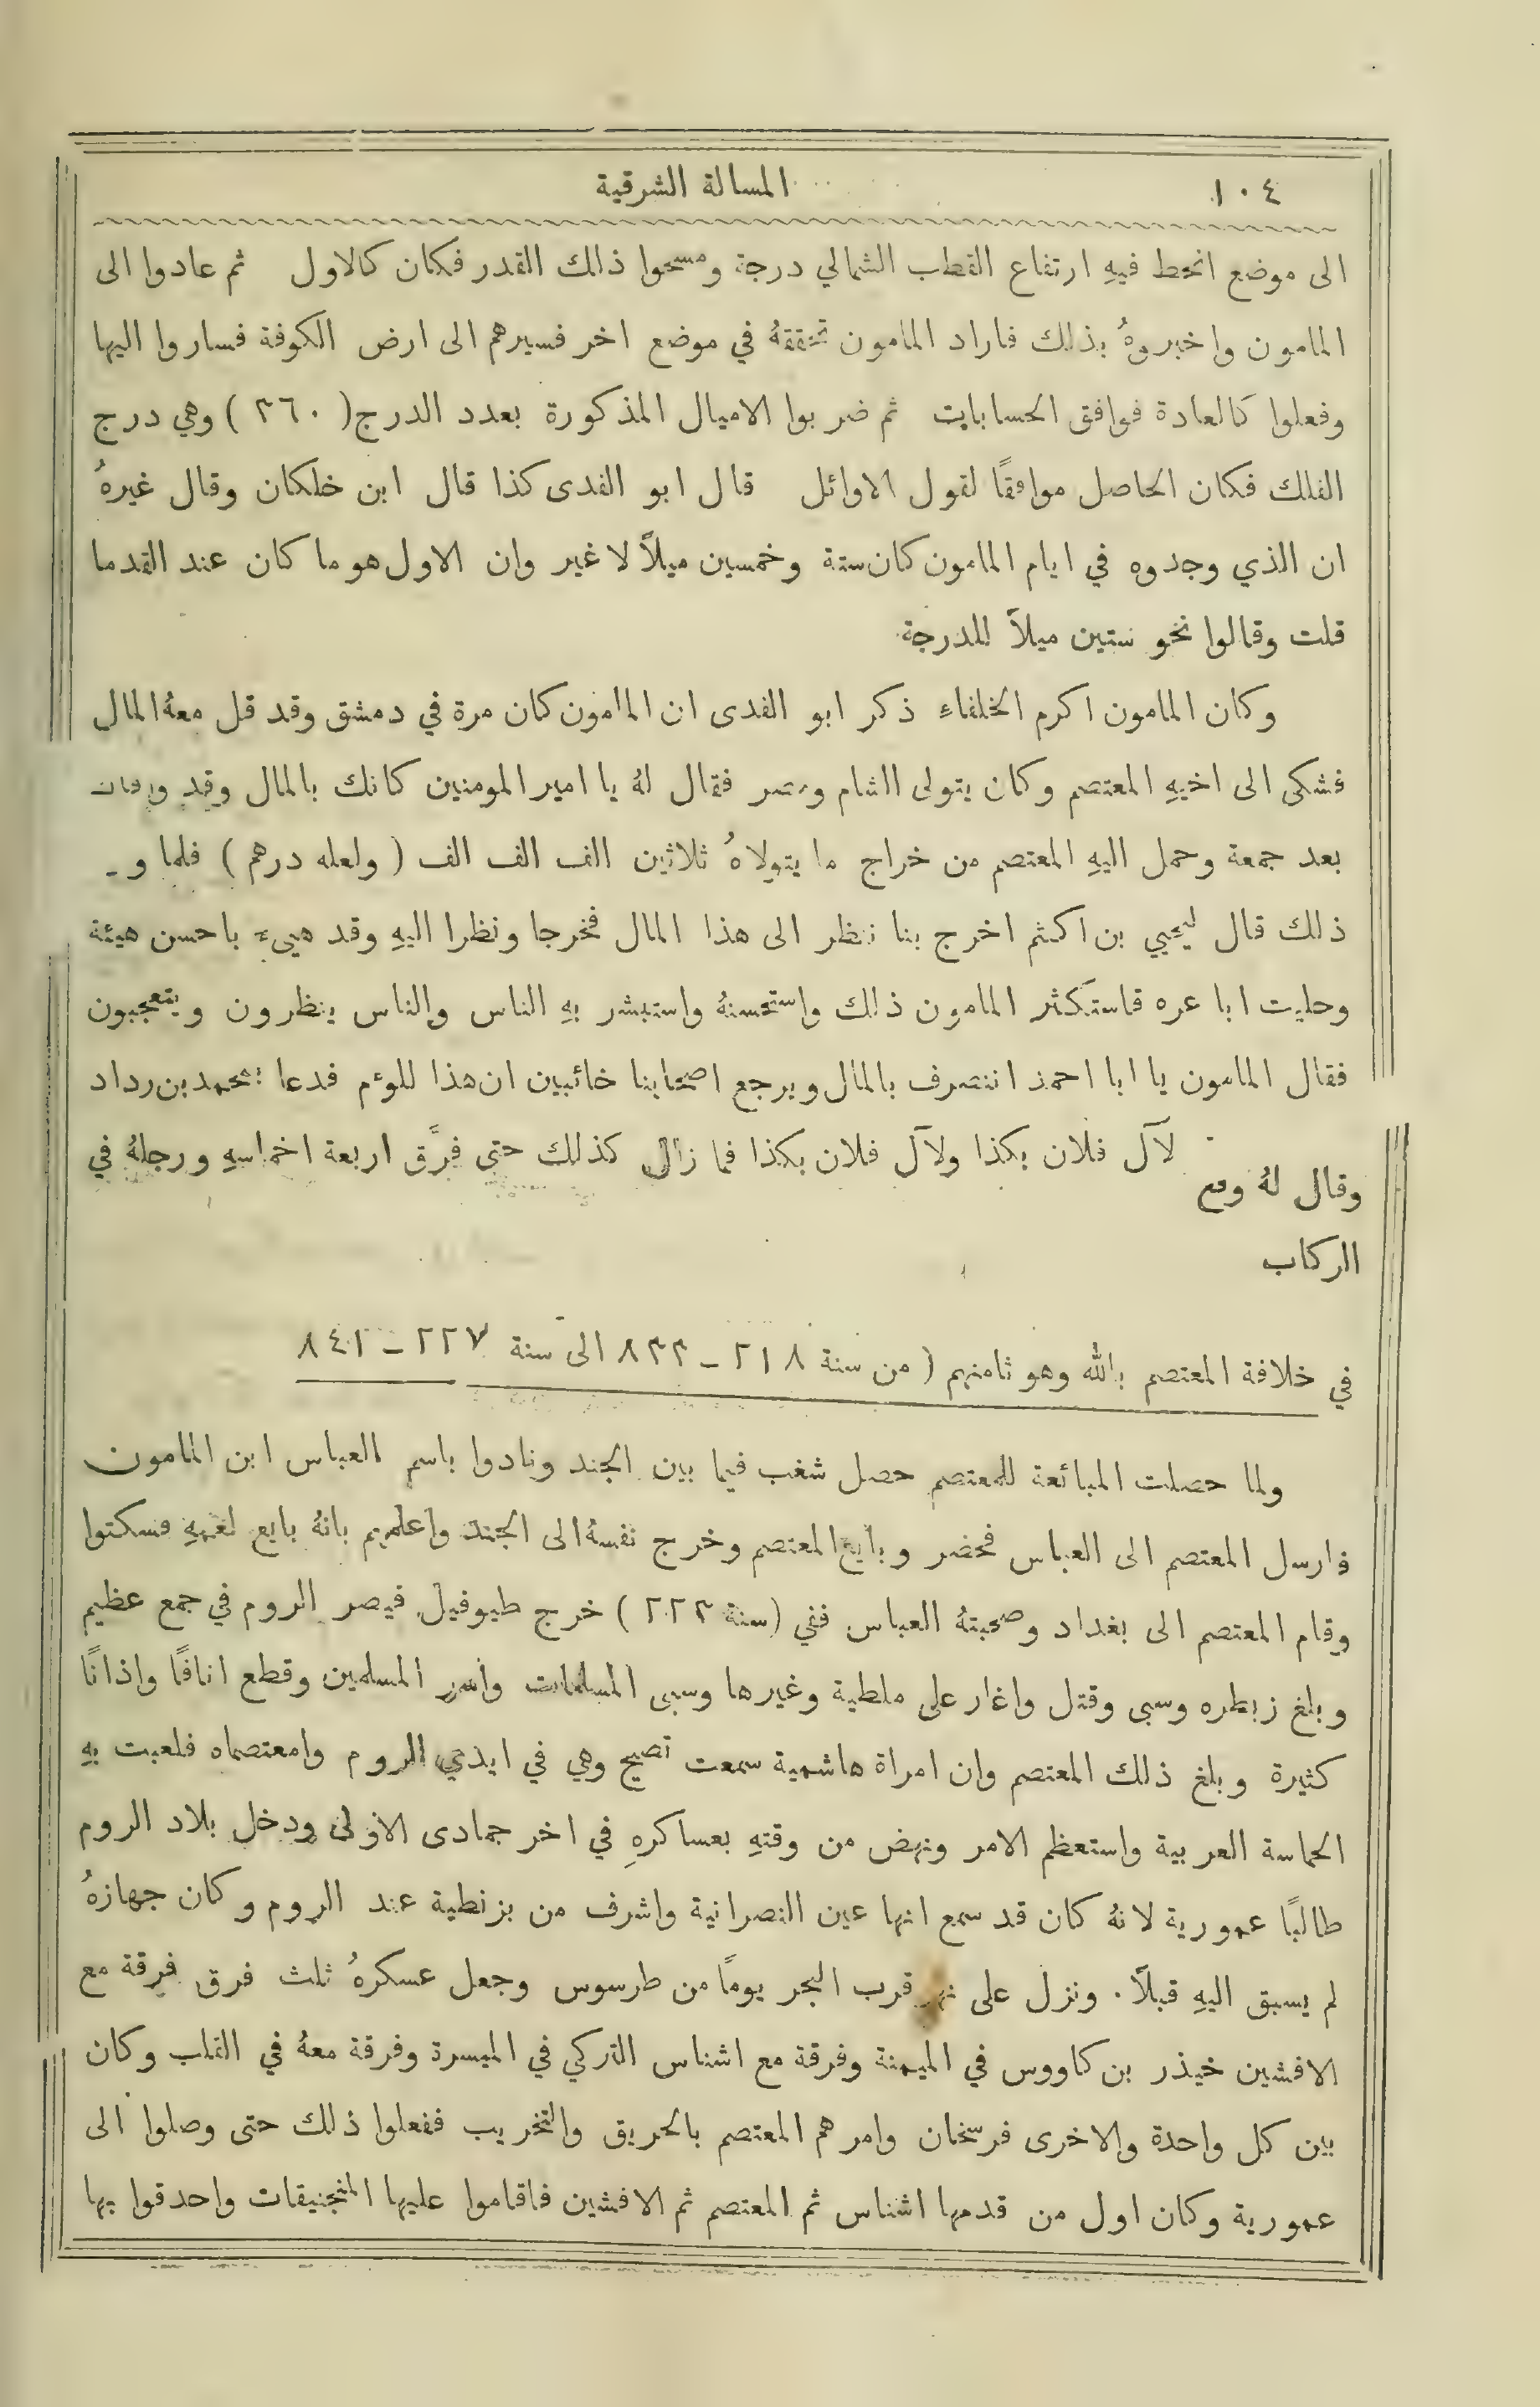 ١٠٤ المسالة الشرقية
الى موضع انحط فيهِ ارتفاع القطب الشمالي درجة ومسحوا ذلك القدر فكان كالاول ثم عادوا الى
المامون واخبروهُ بذلك فاراد المامون تحققهُ في موضع اخر فسيرهم الى ارض الكوفة فساروا اليها
وفعلوا كالعادة فوافق الحسابات ثم ضربوا الاميال المذكورة بعدد الدرج ( ٣٦٠ ) وهي درج
الفلك فكان الحاصل موافقًا لقول الاوائل قال ابو الفدى كذا قال ابن خلكان وقال غيرهُ
ان الذي وجدوه في ايام المامون كان ستة وخمسين ميلاً لا غير وان الاول هو ما كان عند القدما
قلت وقالوا نحو ستين ميلاً للدرجة
وكان المامون اكرم الخلفاء ذكر ابو الفدى ان المامون كان مرة في دمشق وقد قل معهُ المال
فشكى الى اخيهِ المعتصم وكان يتولى الشام ومصر فقال لهُ يا امير المومنين كانك بالمال وقد
بعد جمعة وحمل اليهِ المعتصم من خراج ما يتولاهُ ثلاثين الف الف الف ( ولعله درهم ) فلما
ذلك قال ليحيي بن اكثم اخرج بنا ننظر الى هذا المال فخرجا ونظرا اليهِ وقد هيىء باحسن هيئة
وحليت ابا عره فاستكثر المامون ذلك واستحسنهُ واستبشر بهِ الناس والناس ينظرون ويتعجبون
فقال المامون يا ابا احمد اننصرف بالمال ويرجع اصحابنا خائبين ان هذا للوءم فدعا بمحمد بن رداد
وقال لهُ وقع لآل فلان بكذا ولآل فلان بكذا فما زال كذلك حتى فرَّق اربعة اخماسهِ ورجلهُ في
الركاب
في خلافة المعتصم بالله وهو ثامنهم ( من سنة ٢١٨ - ٨٣٣ الى سنة ٢٢٧ - ٨٤١
ولما حصلت المبائعة للمعتصم حصل شغب فيما بين الجند ونادوا باسم العباس ابن المامون
فارسل المعتصم الى العباس فحضر وبايع المعتصم وخرج نفسهُ الى الجند واعلمهم بانهُ بايع لعمهِ فسكتوا
وقام المعتصم الى بغداد وصحبتهُ العباس ففي (سنة ٢٢٣ ) خرج طيوفيل قيصر الروم في جمع عظيم
وبلغ زبطره وسبى وقتل واغار على ملطية وغيرها وسبى المسلمات واسر المسلمين وقطع انافًا واذانًا
كثيرة وبلغ ذلك المعتصم وان امراة هاشمية سمعت تصيح وهي في ايدي الروم وامعتصماه فلعبت بهِ
الحماسة العربية واستعظم الامر ونهض من وقتهِ بعساكرهِ في اخر جمادى الاولى ودخل بلاد الروم
طالبًا عمورية لانهُ كان قد سمع انها عين النصرانية واشرف من بزنطية عند الروم وكان جهازهُ
لم يسبق اليهِ قبلاً. ونزل على نهر قرب البحر يومًا من طرسوس وجعل عسكرهُ ثلث فرق فرقة مع
الافشين خيذر بن كاووس في الميمنة وفرقة مع اشناس التركي في الميسرة وفرقة معهُ في القلب وكان
بين كل واحدة والاخرى فرسخان وامرهم المعتصم بالحريق والتخريب ففعلوا ذلك حتى وصلوا الى
عمورية وكان اول من قدمها اشناس ثم المعتصم ثم الافشين فاقاموا عليها المنجنيقات واحدقوا بها